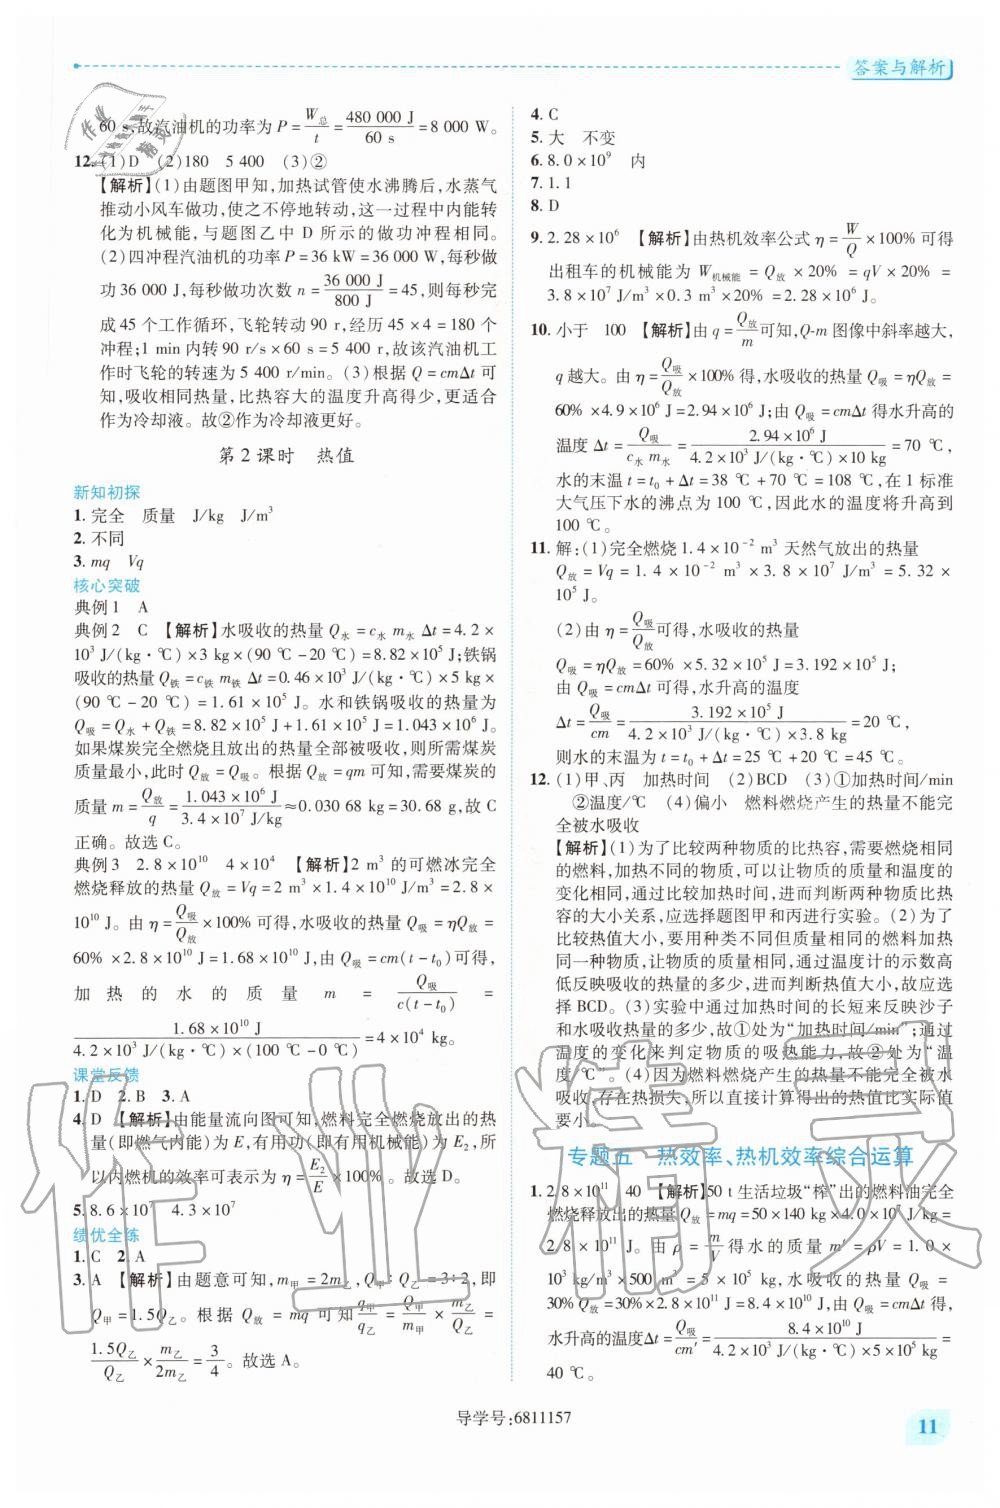 答案与解析
60 s,故汽油机的功率为 P=W总/t=480 000 J/60 s=8 000 W。
12.(1)D (2)180 5 400 (3)②
【解析】(1)由题图甲知,加热试管使水沸腾后,水蒸气
推动小风车做功,使之不停地转动,这一过程中内能转
化为机械能,与题图乙中 D 所示的做功冲程相同。
(2)四冲程汽油机的功率 P=36 kW=36 000 W,每秒做
功 36 000 J,每秒做功次数 n=36 000 J/800 J=45,则每秒完
成 45 个工作循环,飞轮转动 90 r,经历 45×4=180 个
冲程;1 min 内转 90 r/s×60 s=5 400 r,故该汽油机工
作时飞轮的转速为 5 400 r/min。(3)根据 Q=cmΔt 可
知,吸收相同热量,比热容大的温度升高得少,更适合
作为冷却液。故②作为冷却液更好。
第 2 课时 热值
新知初探
1.完全 质量 J/kg J/m³
2.不同
3.mq Vq
核心突破
典例1 A
典例2 C 【解析】水吸收的热量 Q水=c水 m水 Δt=4.2×
10³ J/(kg·℃)×3 kg×(90 ℃-20 ℃)=8.82×10⁵ J;铁锅
吸收的热量 Q铁=c铁 m铁 Δt=0.46×10³ J/(kg·℃)×5 kg×
(90 ℃-20 ℃)=1.61×10⁵ J。水和铁锅吸收的热量为
Q吸=Q水+Q铁=8.82×10⁵ J+1.61×10⁵ J=1.043×10⁶ J。
如果煤炭完全燃烧且放出的热量全部被吸收,则所需煤炭
质量最小,此时 Q放=Q吸。根据 Q放=qm 可知,需要煤炭的
质量 m=Q放/q=1.043×10⁶ J/3.4×10⁷ J/kg≈0.030 68 kg=30.68 g,故 C
正确。故选 C。
典例3 2.8×10¹⁰ 4×10⁴ 【解析】2 m³ 的可燃冰完全
燃烧释放的热量 Q放=Vq=2 m³×1.4×10¹⁰ J/m³=2.8×
10¹⁰ J。由 η=Q吸/Q放×100% 可得,水吸收的热量 Q吸=ηQ放=
60% ×2.8×10¹⁰ J=1.68×10¹⁰ J。由 Q吸=cm(t-t₀)可得,
加热的水的质量 m=Q吸/c(t-t₀)=
1.68×10¹⁰ J/4.2×10³ J/(kg·℃)×(100 ℃-0 ℃)=4×10⁴ kg。
课堂反馈
1.D 2.B 3.A
4.D 【解析】由能量流向图可知,燃料完全燃烧放出的热
量(即燃气内能)为 E,有用功(即有用机械能)为 E₂,所
以内燃机的效率可表示为 η=E₂/E×100%。故选 D。
5.8.6×10⁷ 4.3×10⁷
绩优全练
1.C 2.A
3.A 【解析】由题意可知,m甲=2m乙,Q甲∶Q乙=3∶2,即
Q甲=1.5Q乙。根据 Q放=mq 可知 q甲/q乙=Q甲/Q乙×m乙/m甲=
1.5Q乙/Q乙×m乙/2m乙=3/4。故选 A。
4.C
5.大 不变
6.8.0×10⁹ 内
7.1.1
8.D
9.2.28×10⁶ 【解析】由热机效率公式 η=W/Q×100% 可得
出租车的机械能为 W机械能=Q放×20%=qV×20%=
3.8×10⁷ J/m³×0.3 m³×20%=2.28×10⁶ J。
10.小于 100 【解析】由 q=Q放/m可知,Q-m 图像中斜率越大,
q 越大。由 η=Q吸/Q放×100% 得,水吸收的热量 Q吸=ηQ放=
60% ×4.9×10⁶ J=2.94×10⁶ J;由 Q吸=cmΔt 得水升高的
温度 Δt=Q吸/c水 m水=2.94×10⁶ J/4.2×10³ J/(kg·℃)×10 kg=70 ℃,
水的末温 t=t₀+Δt=38 ℃+70 ℃=108 ℃,在 1 标准
大气压下水的沸点为 100 ℃,因此水的温度将升高到
100 ℃。
11.解:(1)完全燃烧 1.4×10⁻² m³ 天然气放出的热量
Q放=Vq=1.4×10⁻² m³×3.8×10⁷ J/m³=5.32×
10⁵ J。
(2)由 η=Q吸/Q放可得,水吸收的热量
Q吸=ηQ放=60% ×5.32×10⁵ J=3.192×10⁵ J;
由 Q吸=cmΔt 可得,水升高的温度
Δt=Q吸/cm=3.192×10⁵ J/4.2×10³ J/(kg·℃)×3.8 kg=20 ℃,
则水的末温为 t=t₀+Δt=25 ℃+20 ℃=45 ℃。
12.(1)甲、丙 加热时间 (2)BCD (3)①加热时间/min
②温度/℃ (4)偏小 燃料燃烧产生的热量不能完
全被水吸收
【解析】(1)为了比较两种物质的比热容,需要燃烧相同
的燃料,加热不同的物质,可以让物质的质量和温度的
变化相同,通过比较加热时间,进而判断两种物质比热
容的大小关系,应选择题图甲和丙进行实验。(2)为了
比较热值大小,要用种类不同但质量相同的燃料加热
同一种物质,让物质的质量相同,通过温度计的示数高
低反映吸收热量的多少,进而判断热值大小,故应选
择 BCD。(3)实验中通过加热时间的长短来反映沙子
和水吸收热量的多少,故①处为“加热时间/min”;通过
温度的变化来判定物质的吸热能力,故②处为“温
度/℃”。(4)因为燃料燃烧产生的热量不能完全被水
吸收,存在热损失,所以直接计算得出的热值比实际值
要小。
专题五 热效率、热机效率综合运算
1.2.8×10¹¹ 40 【解析】50 t 生活垃圾“榨”出的燃料油完全
燃烧释放出的热量 Q放=mq=50×140 kg×4.0×10⁷ J/kg=
2.8×10¹¹ J。由 ρ=m/V得水的质量 m′=ρV=1.0×
10³ kg/m³×500 m³=5×10⁵ kg,水吸收的热量 Q吸=
30% Q放=30%×2.8×10¹¹ J=8.4×10¹⁰ J,由 Q吸=cmΔt 得,
水升高的温度Δt=Q吸/cm′=8.4×10¹⁰ J/4.2×10³ J/(kg·℃)×5×10⁵ kg=
40 ℃。
导学号:6811157
11
作业精灵